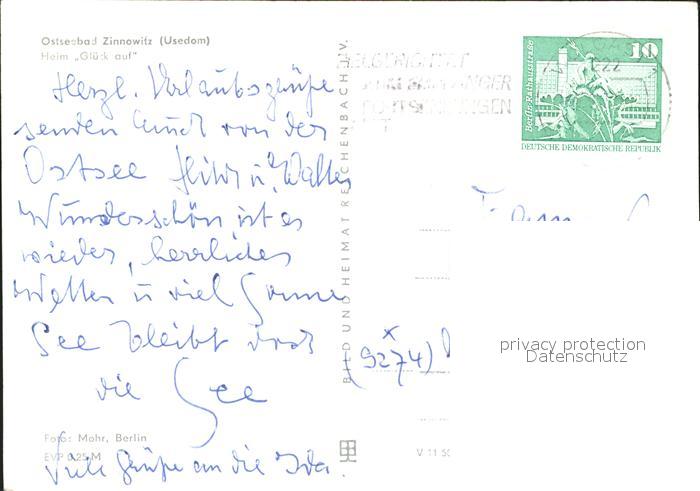 Ostseebad Zinnowitz (Usedom)
Heim „Glück auf“
Herzl. Urlaubsgrüße
senden Euch von der
Ostsee u. Walter
Wunderschön ist es
wieder, herrliches
Wetter u viel Sonne
See bleibt doch
die See
Foto: Mohr, Berlin
EVP 0,25 M
Viele Grüße an die Ida.
BILD UND HEIMAT REICHENBACH V.
V 11 50
(9274)
10
Berlin, Rathausstraße
DEUTSCHE DEMOKRATISCHE REPUBLIK
privacy protection
Datenschutz